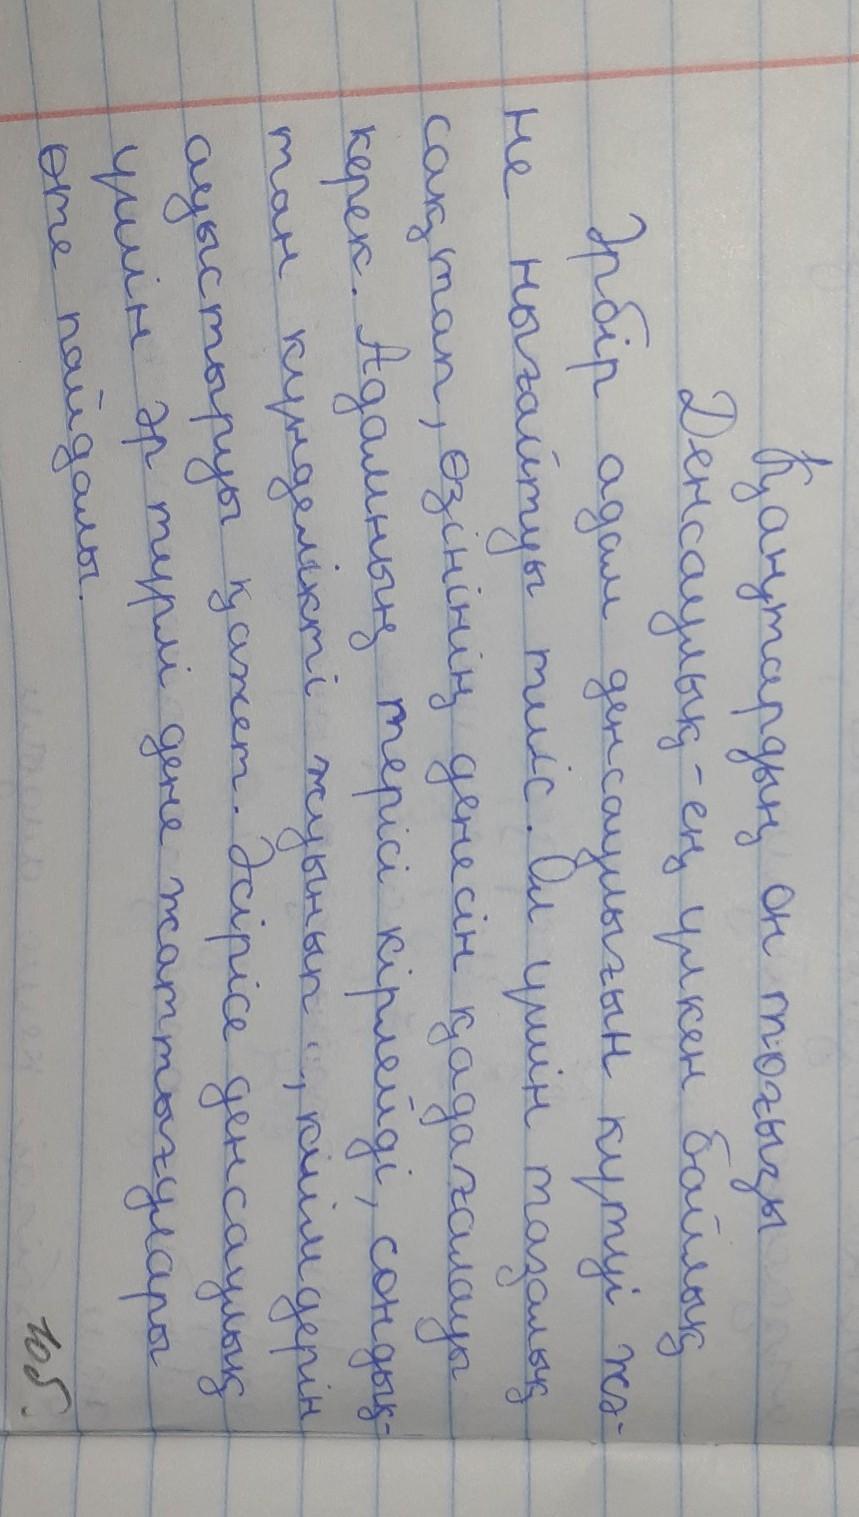 Қаңтардың он тоғызы
Денсаулық-ең үлкен байлық
Әрбір адам денсаулығын күтуі жә-
не нығайтуы тиіс. Ол үшін тазалық
сақтап, өзінінің денесін қадағалауы
керек. Адамның терісі кірлейді, сондық-
тан күнделікті жуынып, киімдерін
ауыстыруы қажет. Әсірісе денсаулық
үшін әр түрлі дене жаттығулары
өте пайдалы.
10б.